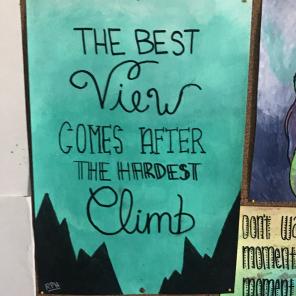 THE BEST
View
COMES AFTER
THE HARDEST
Climb
RPH
Don't
moment
moment